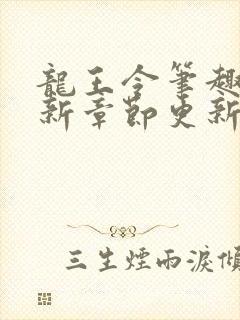 龍王令筆趣
新章節更新
三生煙雨淚傾